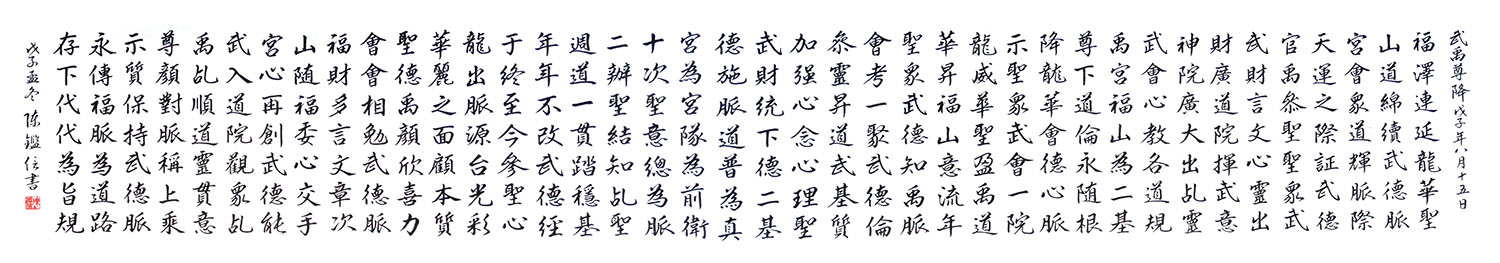 武禹尊降戊子年八月十五日
福澤連延龍華聖
山道綿續武德脈
宮會衆道輝脈際
天運之際証武德
官禹叅聖聖衆武
武財言文心靈出
財廣道院揮武意
神院廣大出乩靈
武會心教各道規
禹宮福山為二基
尊下道倫永随根
降龍華會德心脈
示聖衆武會一院
龍威華聖盈禹道
華昇福山意流年
聖衆武德知禹脈
會考一聚武德倫
叅靈昇道武基質
加强心念心理聖
武財統下德二基
德施脈道普為真
宮為宮隊為前衛
十次聖意總為脈
二辦聖結知乩聖
週道一貫踏穩基
年年不改武德經
于終至今參聖心
龍出脈源台光彩
華麗之面顧本質
聖德禹顏欣喜力
會會相勉武德脈
福財多言文章次
山随福委心交手
宮心再創武德能
武入道院觀衆乩
禹乩順道靈貫意
尊顏對脈稱上乘
示質保持武德脈
永傳福脈為道路
存下代代為旨規
戊子孟冬 陳鑑信書